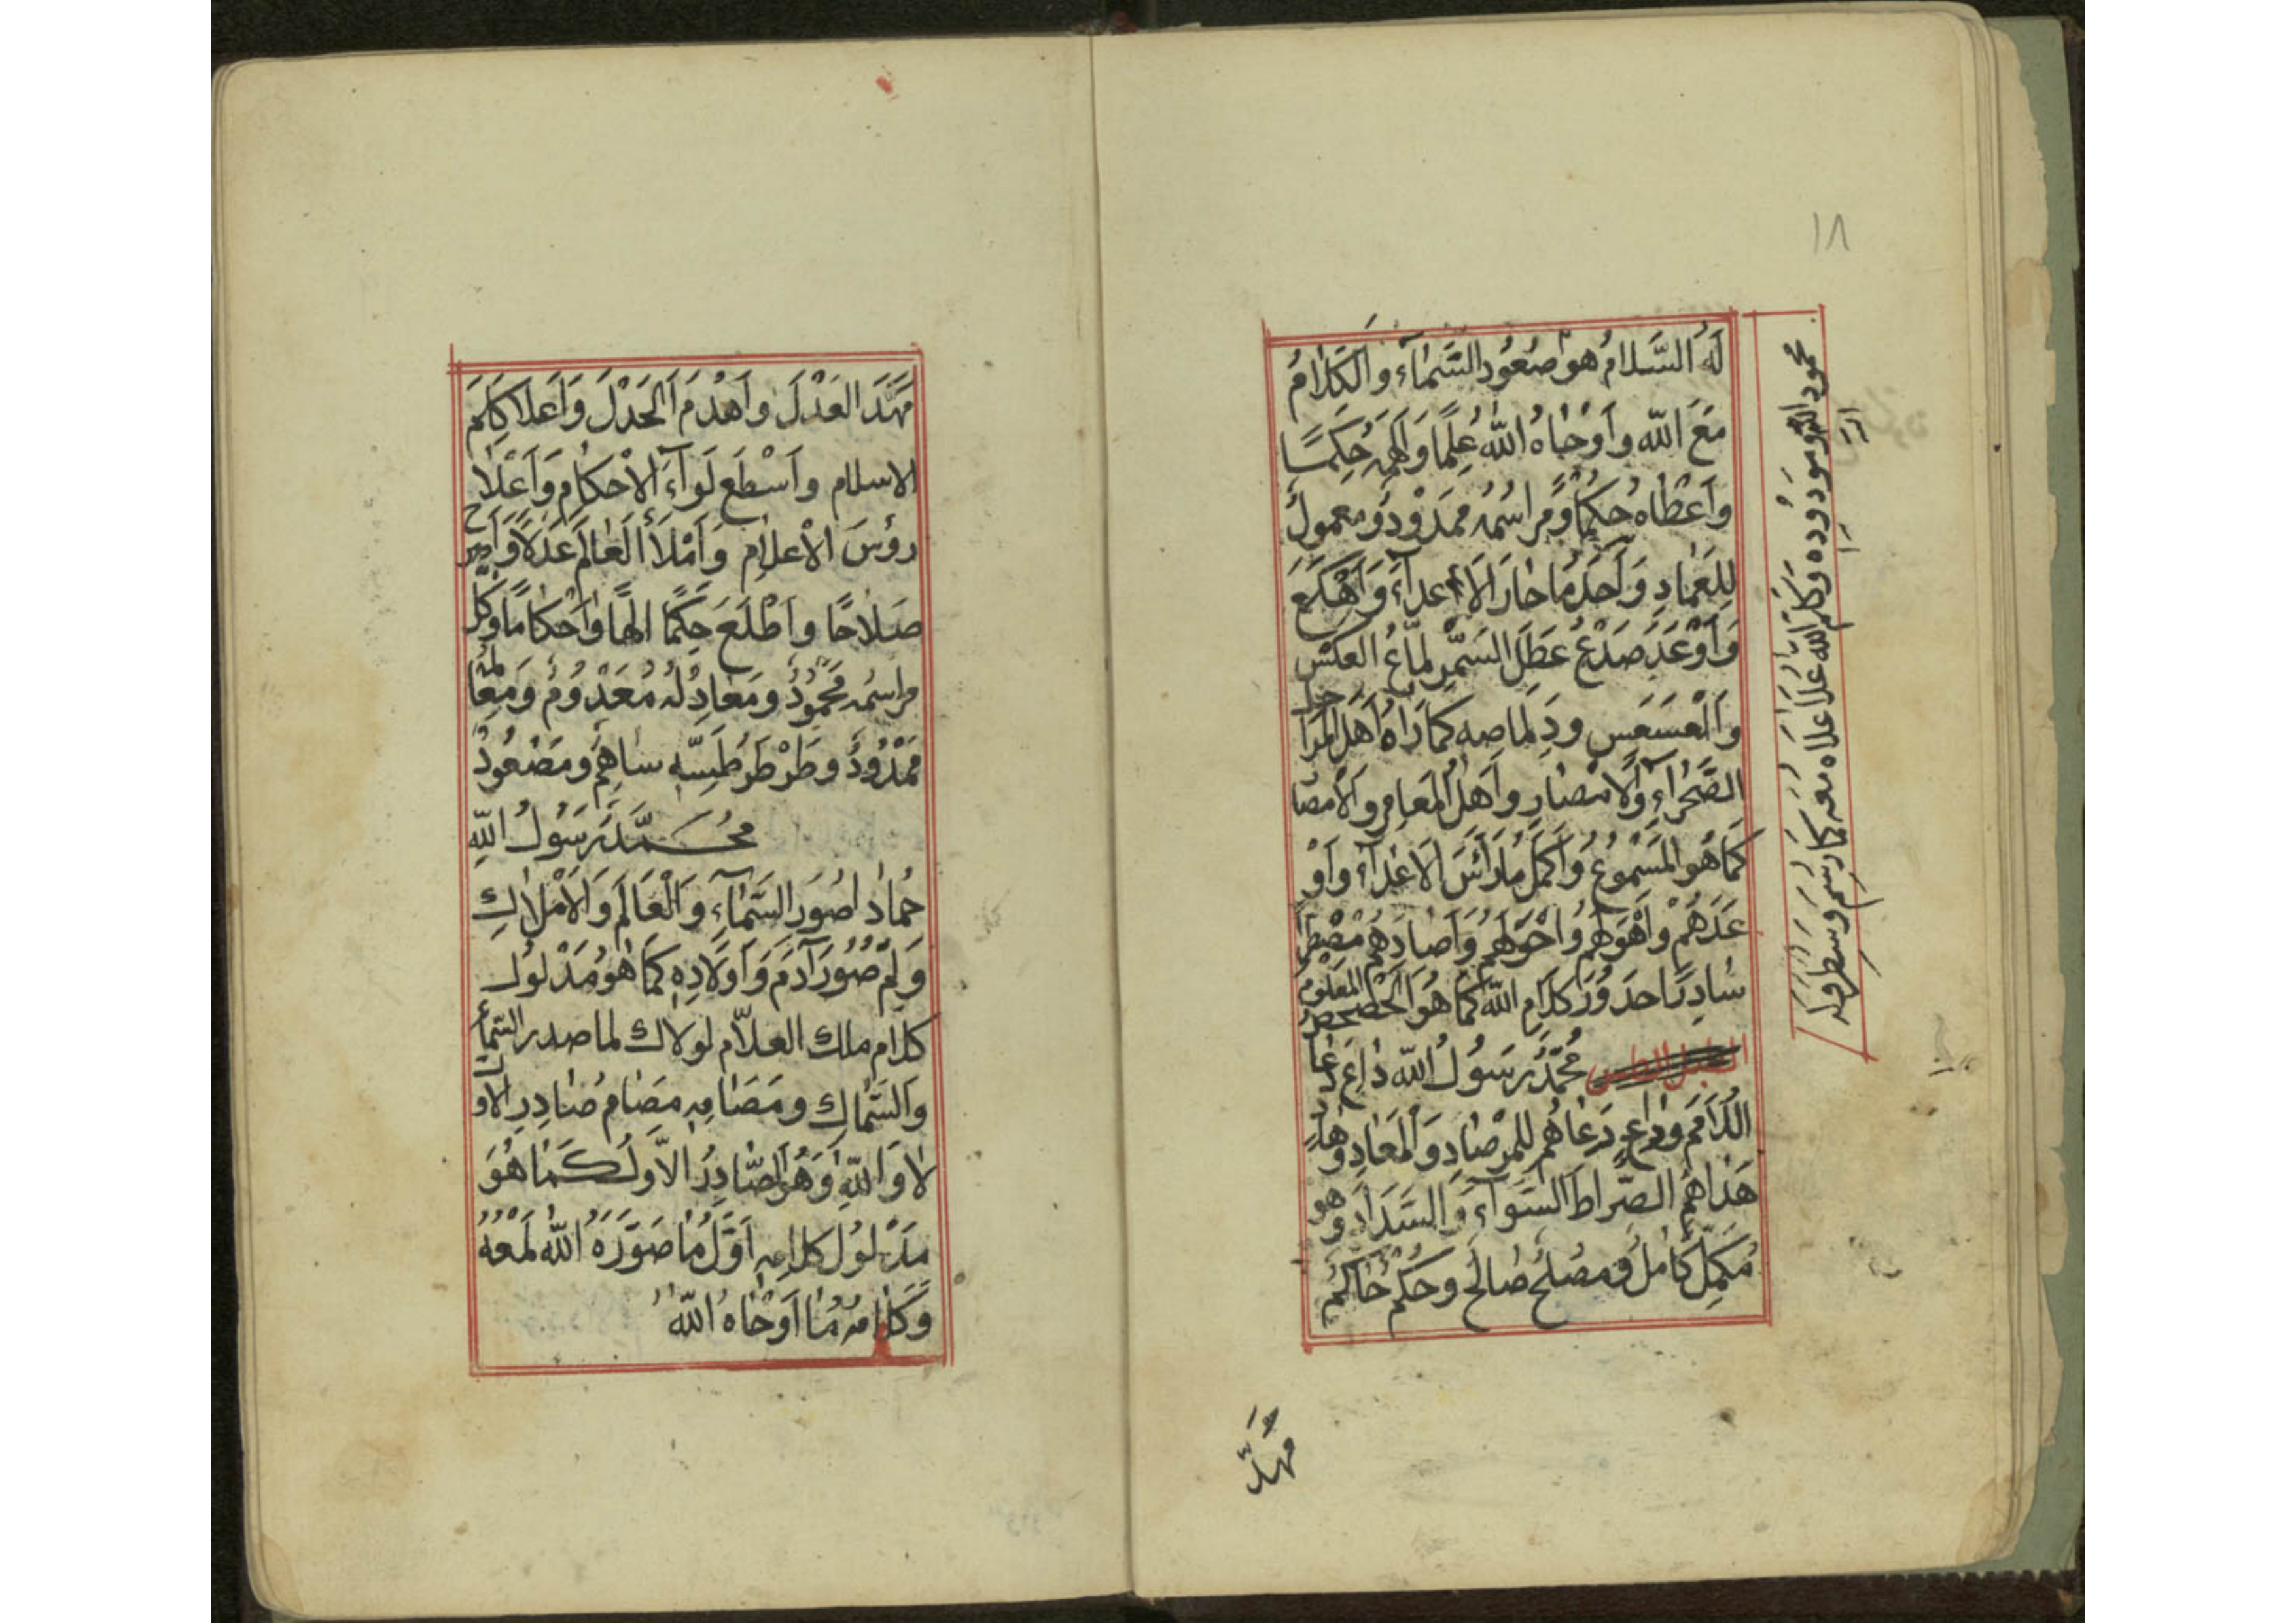 ١٨
لَهُ السَّلَامُ هُوَ صُعُودُ السَّمَاءِ وَالْكَلَامُ
مَعَ اللّٰهِ وَاَوْحَاهُ اللّٰهُ عِلْمًا وَاَلْهَمَهُ حِكَمًا
وَاَعْطَاهُ حُكْمًا وَمَرَاسِمُهُ مَمْدُودٌ وَمَعْمُولٌ
لِلْعِمَادِ وَلَحْدُ مَا حَارَ الْاَعْدَاءَ وَاَهْكَعَ
وَاَوْعَدَ صَدْعُ عَطَلَ السَّمَرِ لِمَاعُ الْعَكْسِ
وَالْعَسْعَسِ وَدِلَماصِهِ كَمَا رَاهُ اَهْلُ الْمَرَاحِل
الصَّحْرَاءِ وَالْاَمْصَارِ وَاَهْلُ الْمَعَامِرِ وَالْاَمْصَا
كَمَا هُوَ الْمَسْمُوعُ وَاَكْمَلُ مَا رَاْسَ الْاَعْدَاءِ وَاَوْ
عَدَهُمْ وَاَهْوَهُمْ وَاَحْوَلَهُمْ وَاَصَادَهُمْ
سَادِرًا حَدَوَرَ كَلَامِ اللّٰهِ كَمَا هُوَ الْمَعْلُوم
مُحَمَّدٌ رَسُولُ اللّٰهِ دَاعٍ دَعَا
اللَّدَامَمَ وَدَاعٍ دَعَاهُمْ لِلْمِرْصَادِ وَالْمَعَادِ وَهَادٍ
هَدَاهُمُ الصِّرَاطَ السَّوَاءَ وَالسَّدَادَ وَهُوَ
مُكَمِّلٌ كَامِلٌ وَمُصْلِحٌ صَالِحٌ وَحَكَمٌ حَاكِمٌ
مَهَّدَ
محمود اللّٰه ومودوده وكلم اللّٰه علا علاه معه كما رسم وسطر
مَهَّدَ الْعَدْلَ وَاَهْدَمَ الْحَدْلَ وَاَعْلَا كَلِمَ
الاسلام وَاَسْطَعَ لِوَاءَ الْاَحْكَامِ وَاَعْلَا
رُؤُسَ الْاَعْلَامِ وَاَمْلَأَ الْعَالَمَ عَدْلًا وَاَمْرَ
صَلَاحًا وَاَطْلَعَ حِكَمًا اِلٰهًا وَاَحْكَامًا وَكُلّ
مَرَاسِمُهُ مَحْمُودٌ وَمَعَادِلُهُ مَعْدُومٌ
مَمْدُودٌ وَطِرْطِرُ طَمِسَّهِ سَاهِمٌ وَمَصْعُودٌ
مُحَمَّدٌ رَسُولُ اللّٰهِ
حُمَادَا صُوَرَ السَّمَاءِ وَالْعَالَمَ وَالْاَمْلَاكِ
وَلِمَ صُوِّرَ آدَمُ وَاَوْلَادِهِ كَمَا هُوَ مَدْلُولُ
كلام ملك العلّام لولاك لما صدر السّماء
وَالسِّمَاكِ وَمَصَامُهُ مَصَامُ صَادِرِ الْاَوَّل
لَا وَاللّٰهِ وَهُوَ الصَّادِرُ الْاَوَّلُ كَمَا هُوَ
مَدْلُولُ كَلَامِهِ اَوَّلُ مَا صَوَّرَهُ اللّٰهُ لَمْعَهُ
وَكَلَامُهُ مَا اَوْحَاهُ اللّٰهُ